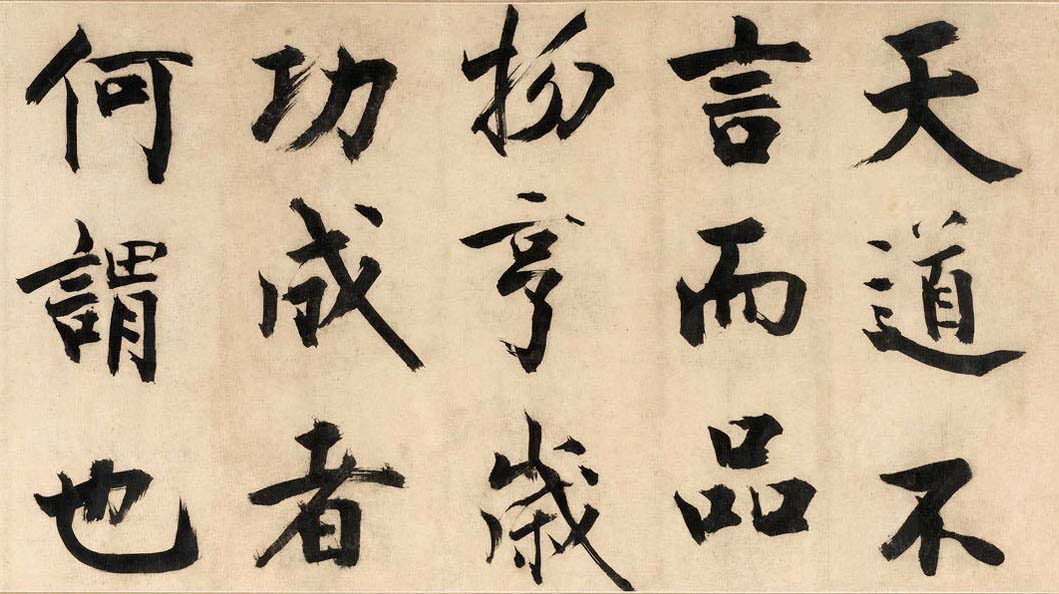 天道不
言而品
物亨歲
功成者
何謂也